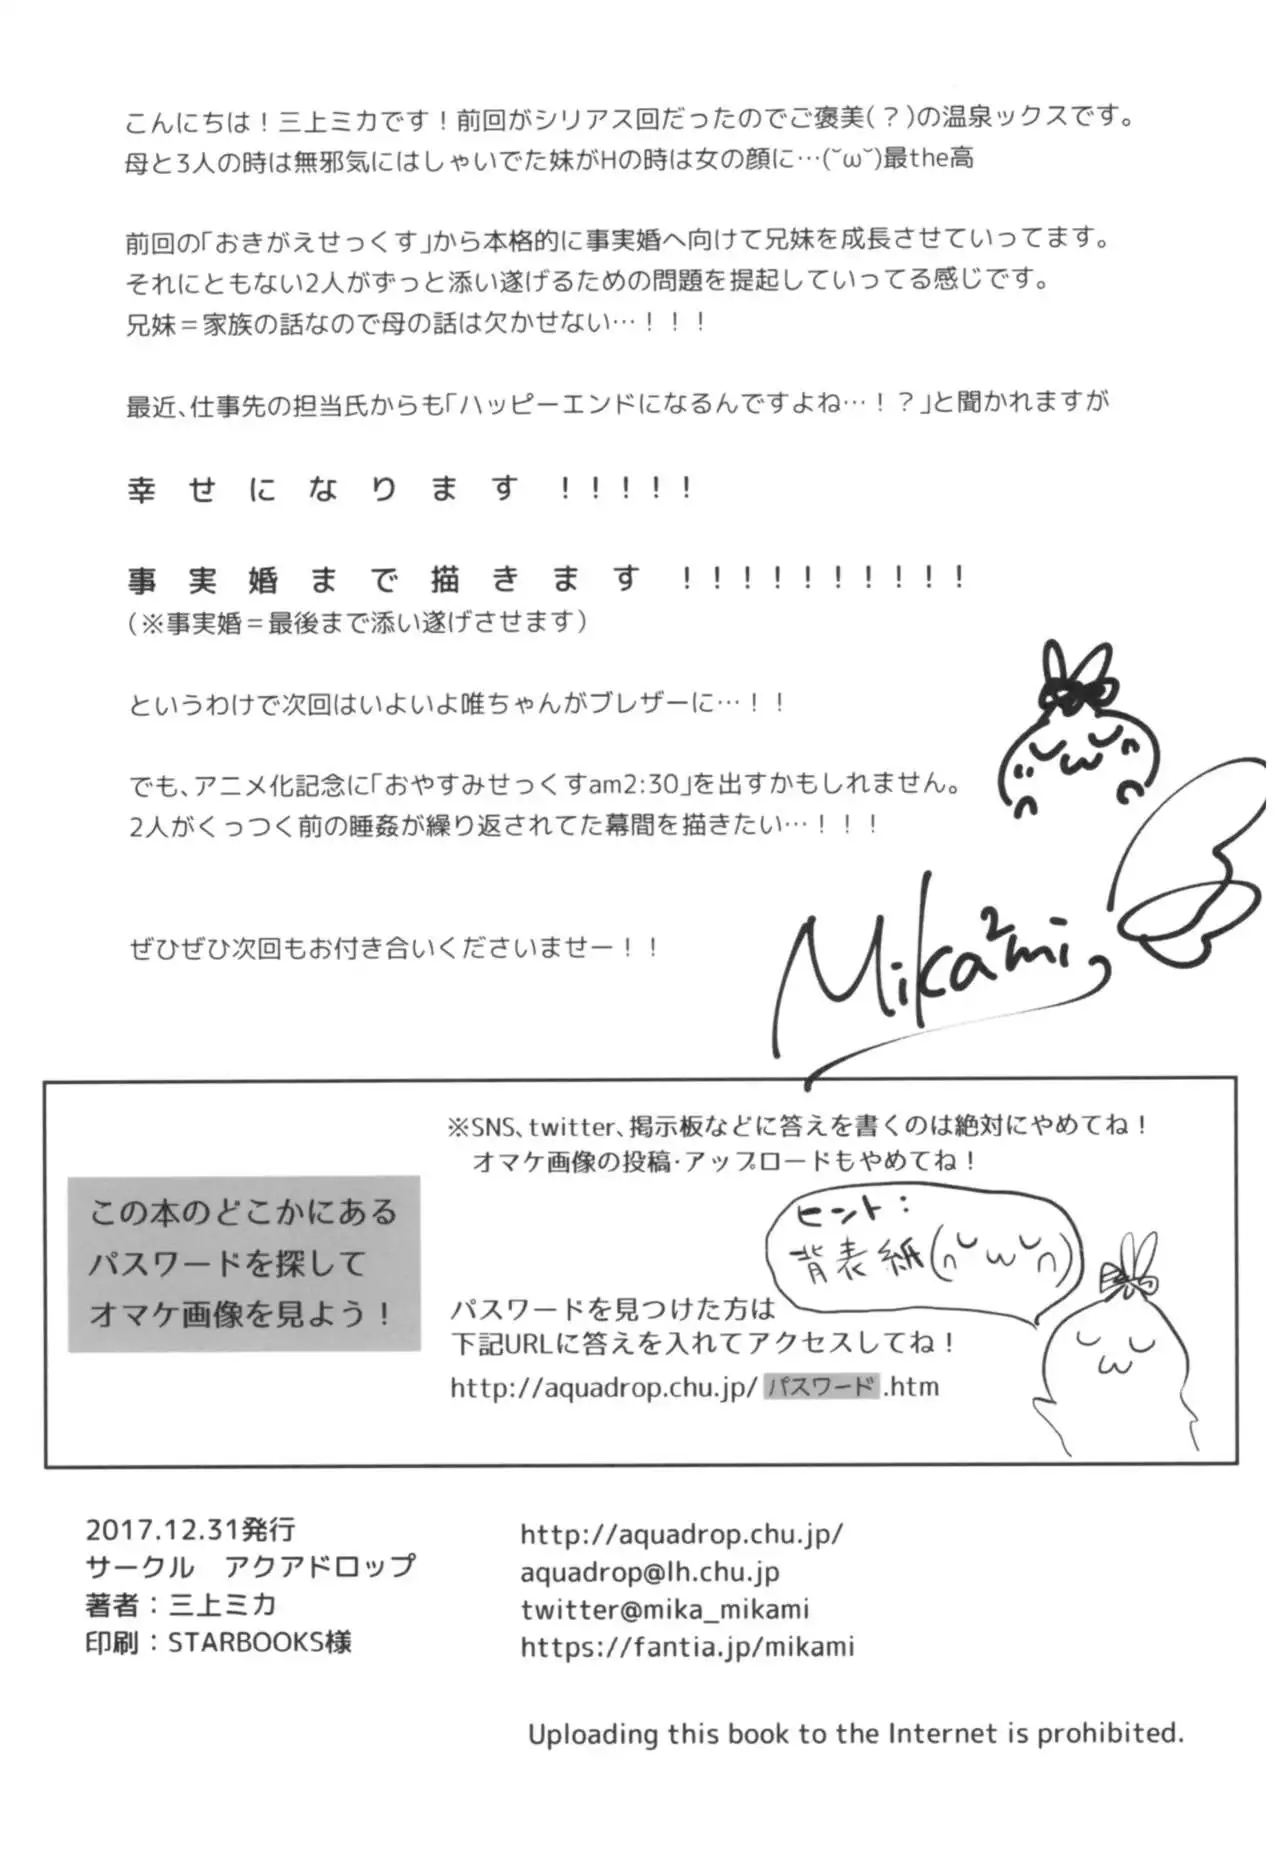 こんにちは！三上ミカです！前回がシリアス回だったのでご褒美(？)の温泉ックスです。
母と3人の時は無邪気にはしゃいでた妹がHの時は女の顔に…(˘ω˘)最the高
前回の「おきがえせっくす」から本格的に事実婚へ向けて兄妹を成長させていってます。
それにともない2人がずっと添い遂げるための問題を提起していってる感じです。
兄妹＝家族の話なので母の話は欠かせない…！！！
最近、仕事先の担当氏からも「ハッピーエンドになるんですよね…！？」と聞かれますが
幸せになります！！！！！
事実婚まで描きます！！！！！！！！！！
(※事実婚＝最後まで添い遂げさせます)
というわけで次回はいよいよ唯ちゃんがブレザーに…！！
でも、アニメ化記念に「おやすみせっくすam2:30」を出すかもしれません。
2人がくっつく前の睡姦が繰り返されてた幕間を描きたい…！！！
ぜひぜひ次回もお付き合いくださいませー！！
Mika2mi
※SNS、twitter、掲示板などに答えを書くのは絶対にやめてね！
オマケ画像の投稿・アップロードもやめてね！
この本のどこかにある
パスワードを探して
オマケ画像を見よう！
ヒント：
背表紙(∩˘ω˘∩)
パスワードを見つけた方は
下記URLに答えを入れてアクセスしてね！
http://aquadrop.chu.jp/パスワード.htm
2017.12.31発行
サークル　アクアドロップ
著者：三上ミカ
印刷：STARBOOKS様
http://aquadrop.chu.jp/
aquadrop@lh.chu.jp
twitter@mika_mikami
https://fantia.jp/mikami
Uploading this book to the Internet is prohibited.